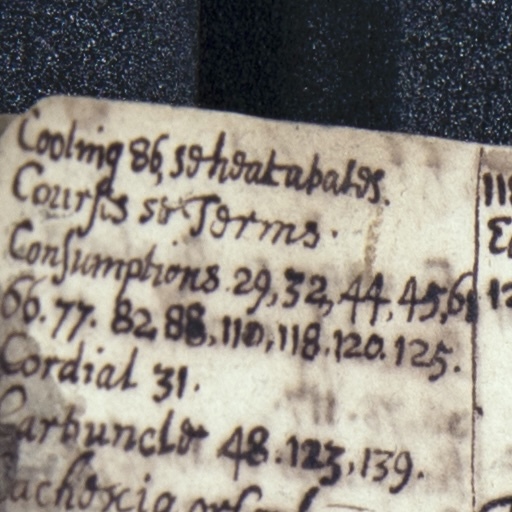 Cooling 86, se heat abates.
Courses se Terms.
Consumptions. 29, 32, 44, 45, 61
66. 77. 82, 88, 110, 118. 120. 125.
Cordial 31.
Carbuncle 48. 123, 139.
Cachexia or